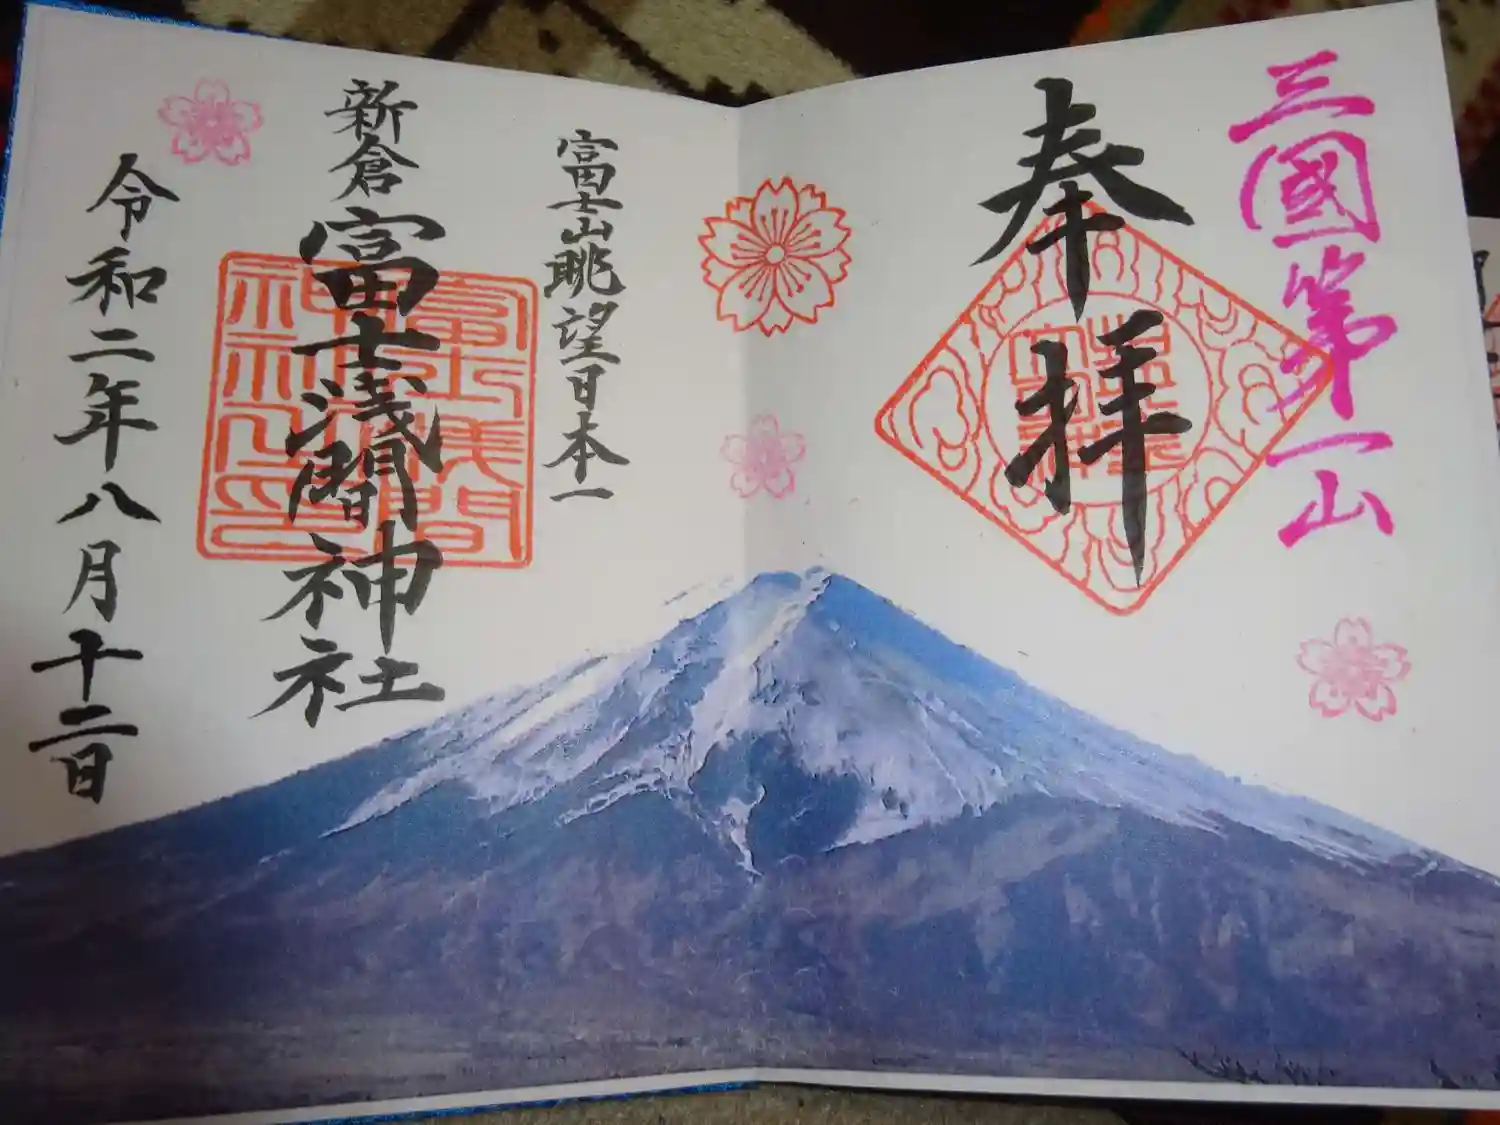 三國第一山
奉拝
富士山眺望日本一
新倉富士浅間神社
令和二年八月十二日